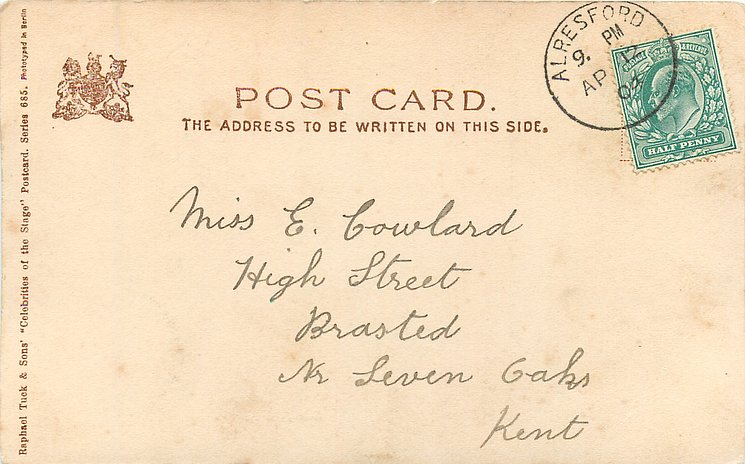 ALRESFORD
9. PM
AP 12
04
POSTAGE & REVENUE
HALF PENNY
POST CARD.
THE ADDRESS TO BE WRITTEN ON THIS SIDE.
Miss E. Cowlard
High Street
Brasted
Nr Seven Oaks
Kent
Raphael Tuck & Sons' "Celebrities of the Stage" Postcard. Series 685. Phototyped in Berlin